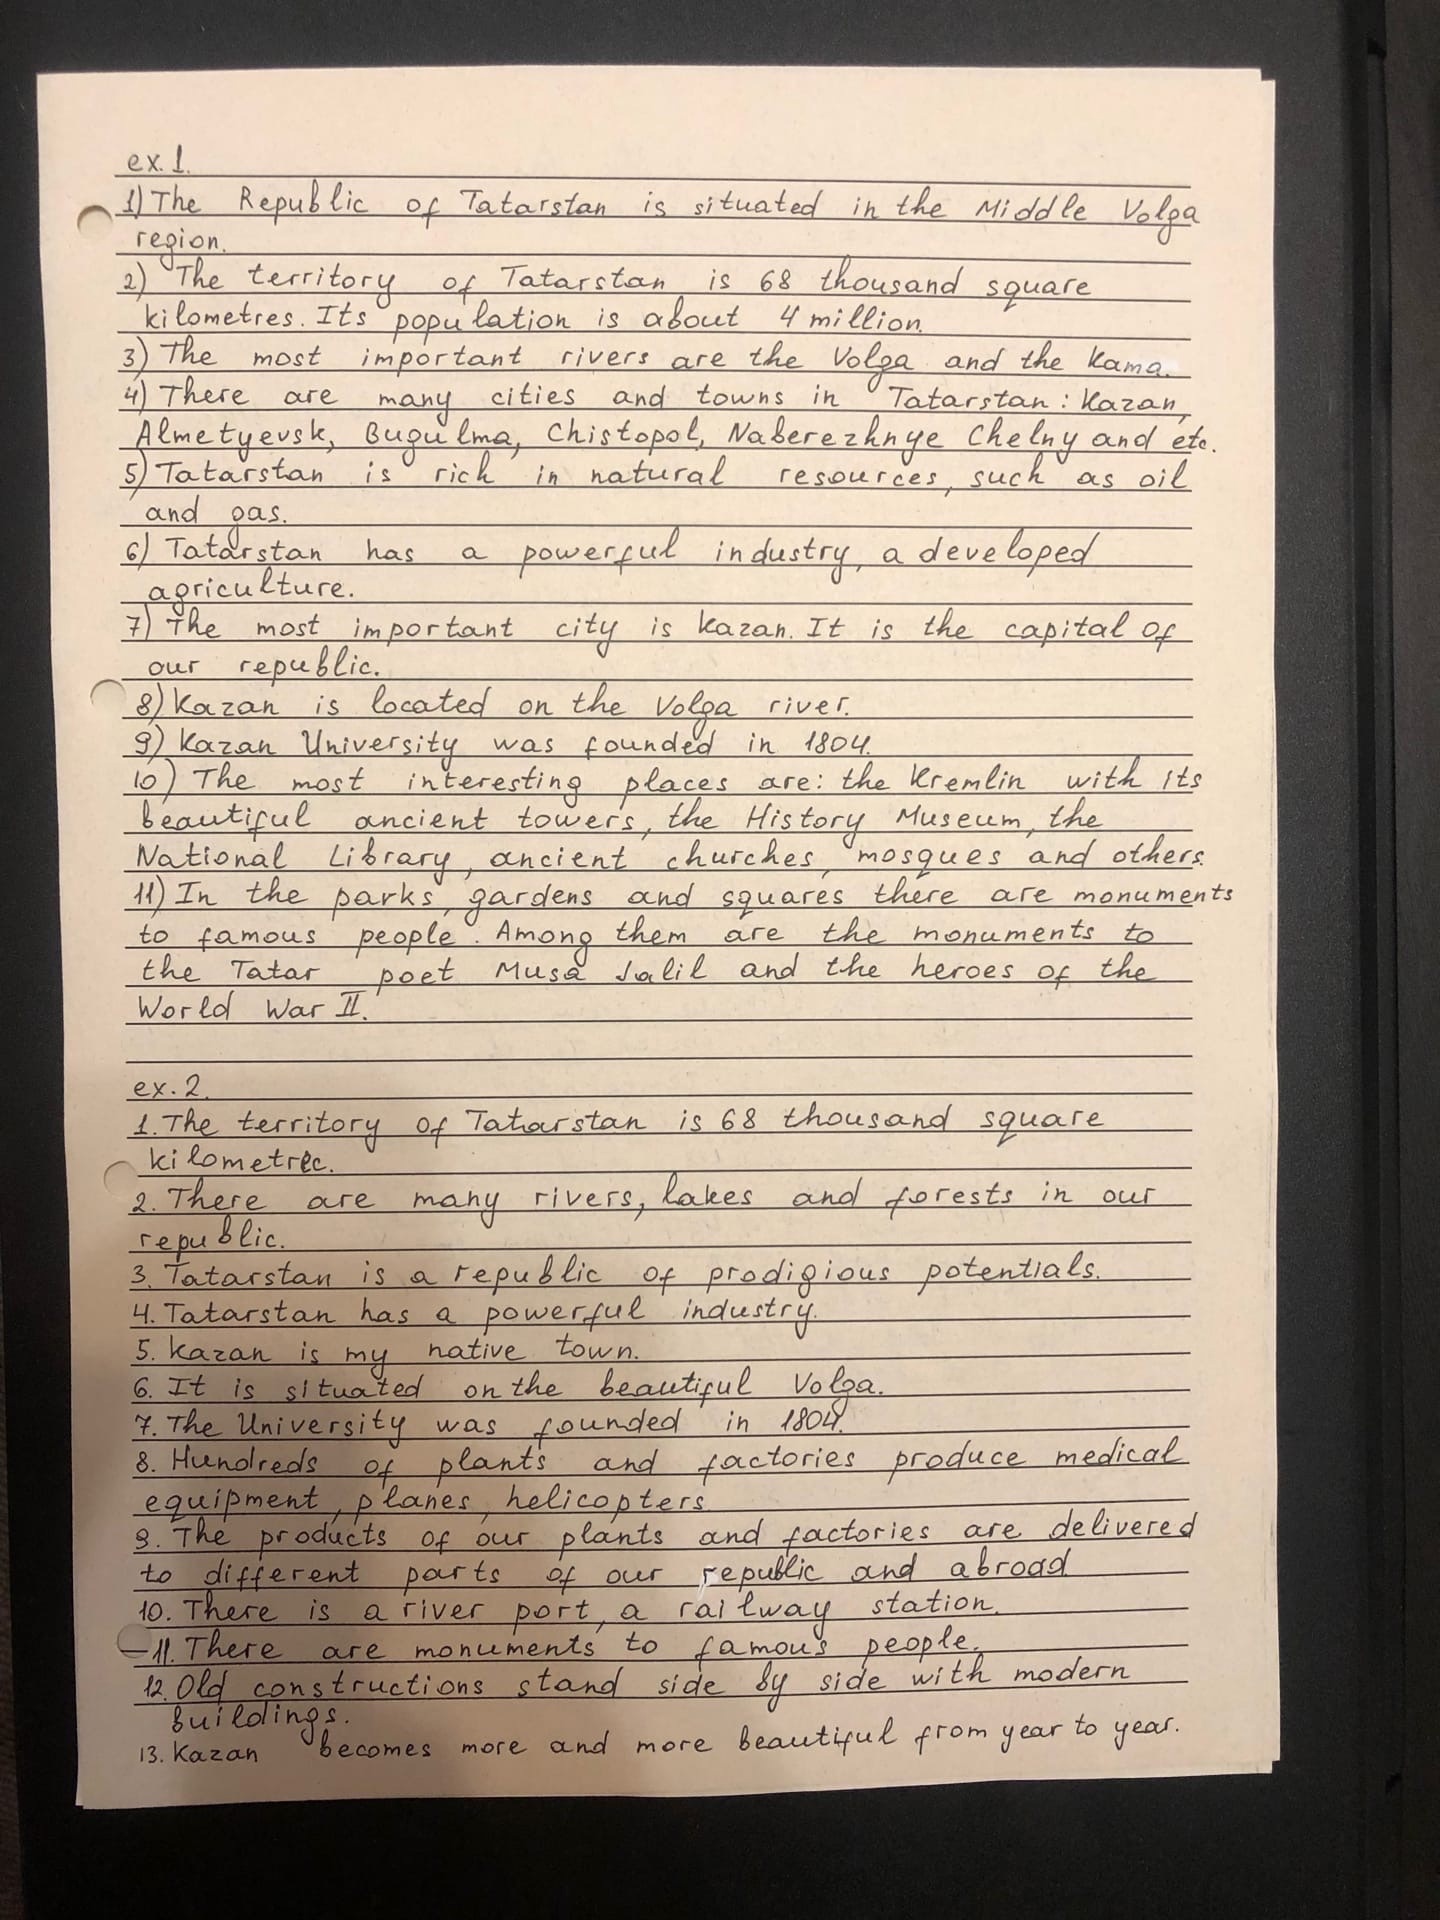 ex. 1.
1) The Republic of Tatarstan is situated in the Middle Volga
region.
2) The territory of Tatarstan is 68 thousand square
kilometres. Its population is about 4 million.
3) The most important rivers are the Volga and the Kama.
4) There are many cities and towns in Tatarstan: Kazan,
Almetyevsk, Bugulma, Chistopol, Naberezhnye Chelny and etc.
5) Tatarstan is rich in natural resources, such as oil
and gas.
6) Tatarstan has a powerful industry, a developed
agriculture.
7) The most important city is Kazan. It is the capital of
our republic.
8) Kazan is located on the Volga river.
9) Kazan University was founded in 1804.
10) The most interesting places are: the Kremlin with its
beautiful ancient towers, the History Museum, the
National Library, ancient churches, mosques and others.
11) In the parks, gardens and squares there are monuments
to famous people. Among them are the monuments to
the Tatar poet Musa Jalil and the heroes of the
World War II.
ex. 2.
1. The territory of Tatarstan is 68 thousand square
kilometrec.
2. There are many rivers, lakes and forests in our
republic.
3. Tatarstan is a republic of prodigious potentials.
4. Tatarstan has a powerful industry.
5. Kazan is my native town.
6. It is situated on the beautiful Volga.
7. The University was founded in 1804.
8. Hundreds of plants and factories produce medical
equipment, planes, helicopters
9. The products of our plants and factories are delivered
to different parts of our republic and abroad
10. There is a river port, a railway station.
11. There are monuments to famous people.
12. Old constructions stand side by side with modern
buildings.
13. Kazan becomes more and more beautiful from year to year.